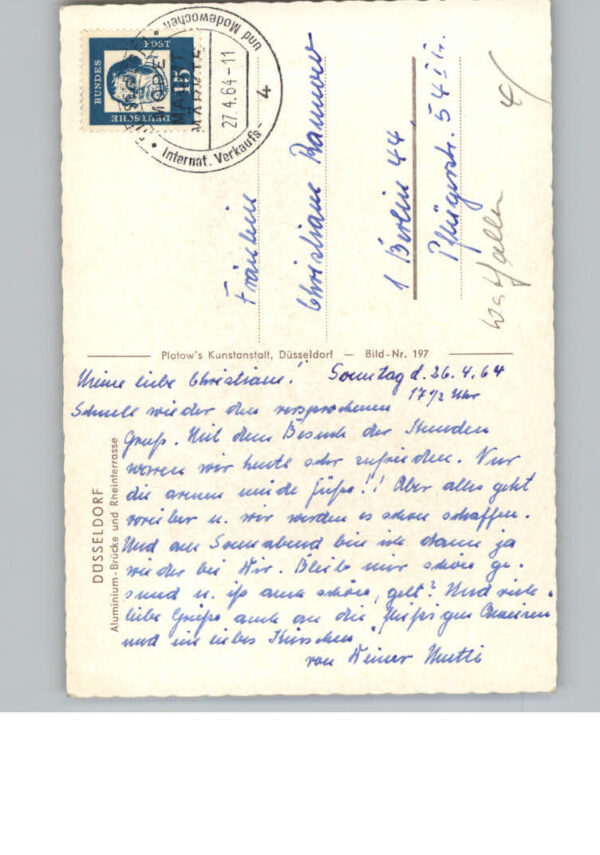 und Modewochen
Internat. Verkaufs-
27.4.64-11
4
DEUTSCHE
BUNDES
POST
15
Fräulein
Christiane
1 Berlin 44
Pflügerstr. 54 I Tr.
Platow's Kunstanstalt, Düsseldorf — Bild-Nr. 197
DÜSSELDORF
Aluminium-Brücke und Rheinterrasse
Meine liebe Christiane! Sonntag d. 26.4.64
17 1/2 Uhr
Schnell wieder den versprochenen
Gruß. Mit dem Besuch der Kunden
waren wir heute sehr zufrieden. Nur
die armen müde Füße!! Aber alles geht
vorüber u. wir werden es schon schaffen.
Und am Sonnabend bin ich dann ja
wieder bei Dir. Bleibe mir schön ge-
sund u. iß auch schön, gelt? Und viele
liebe Grüße auch an die fleißigen
und ein liebes Küsschen
von Deiner Mutti